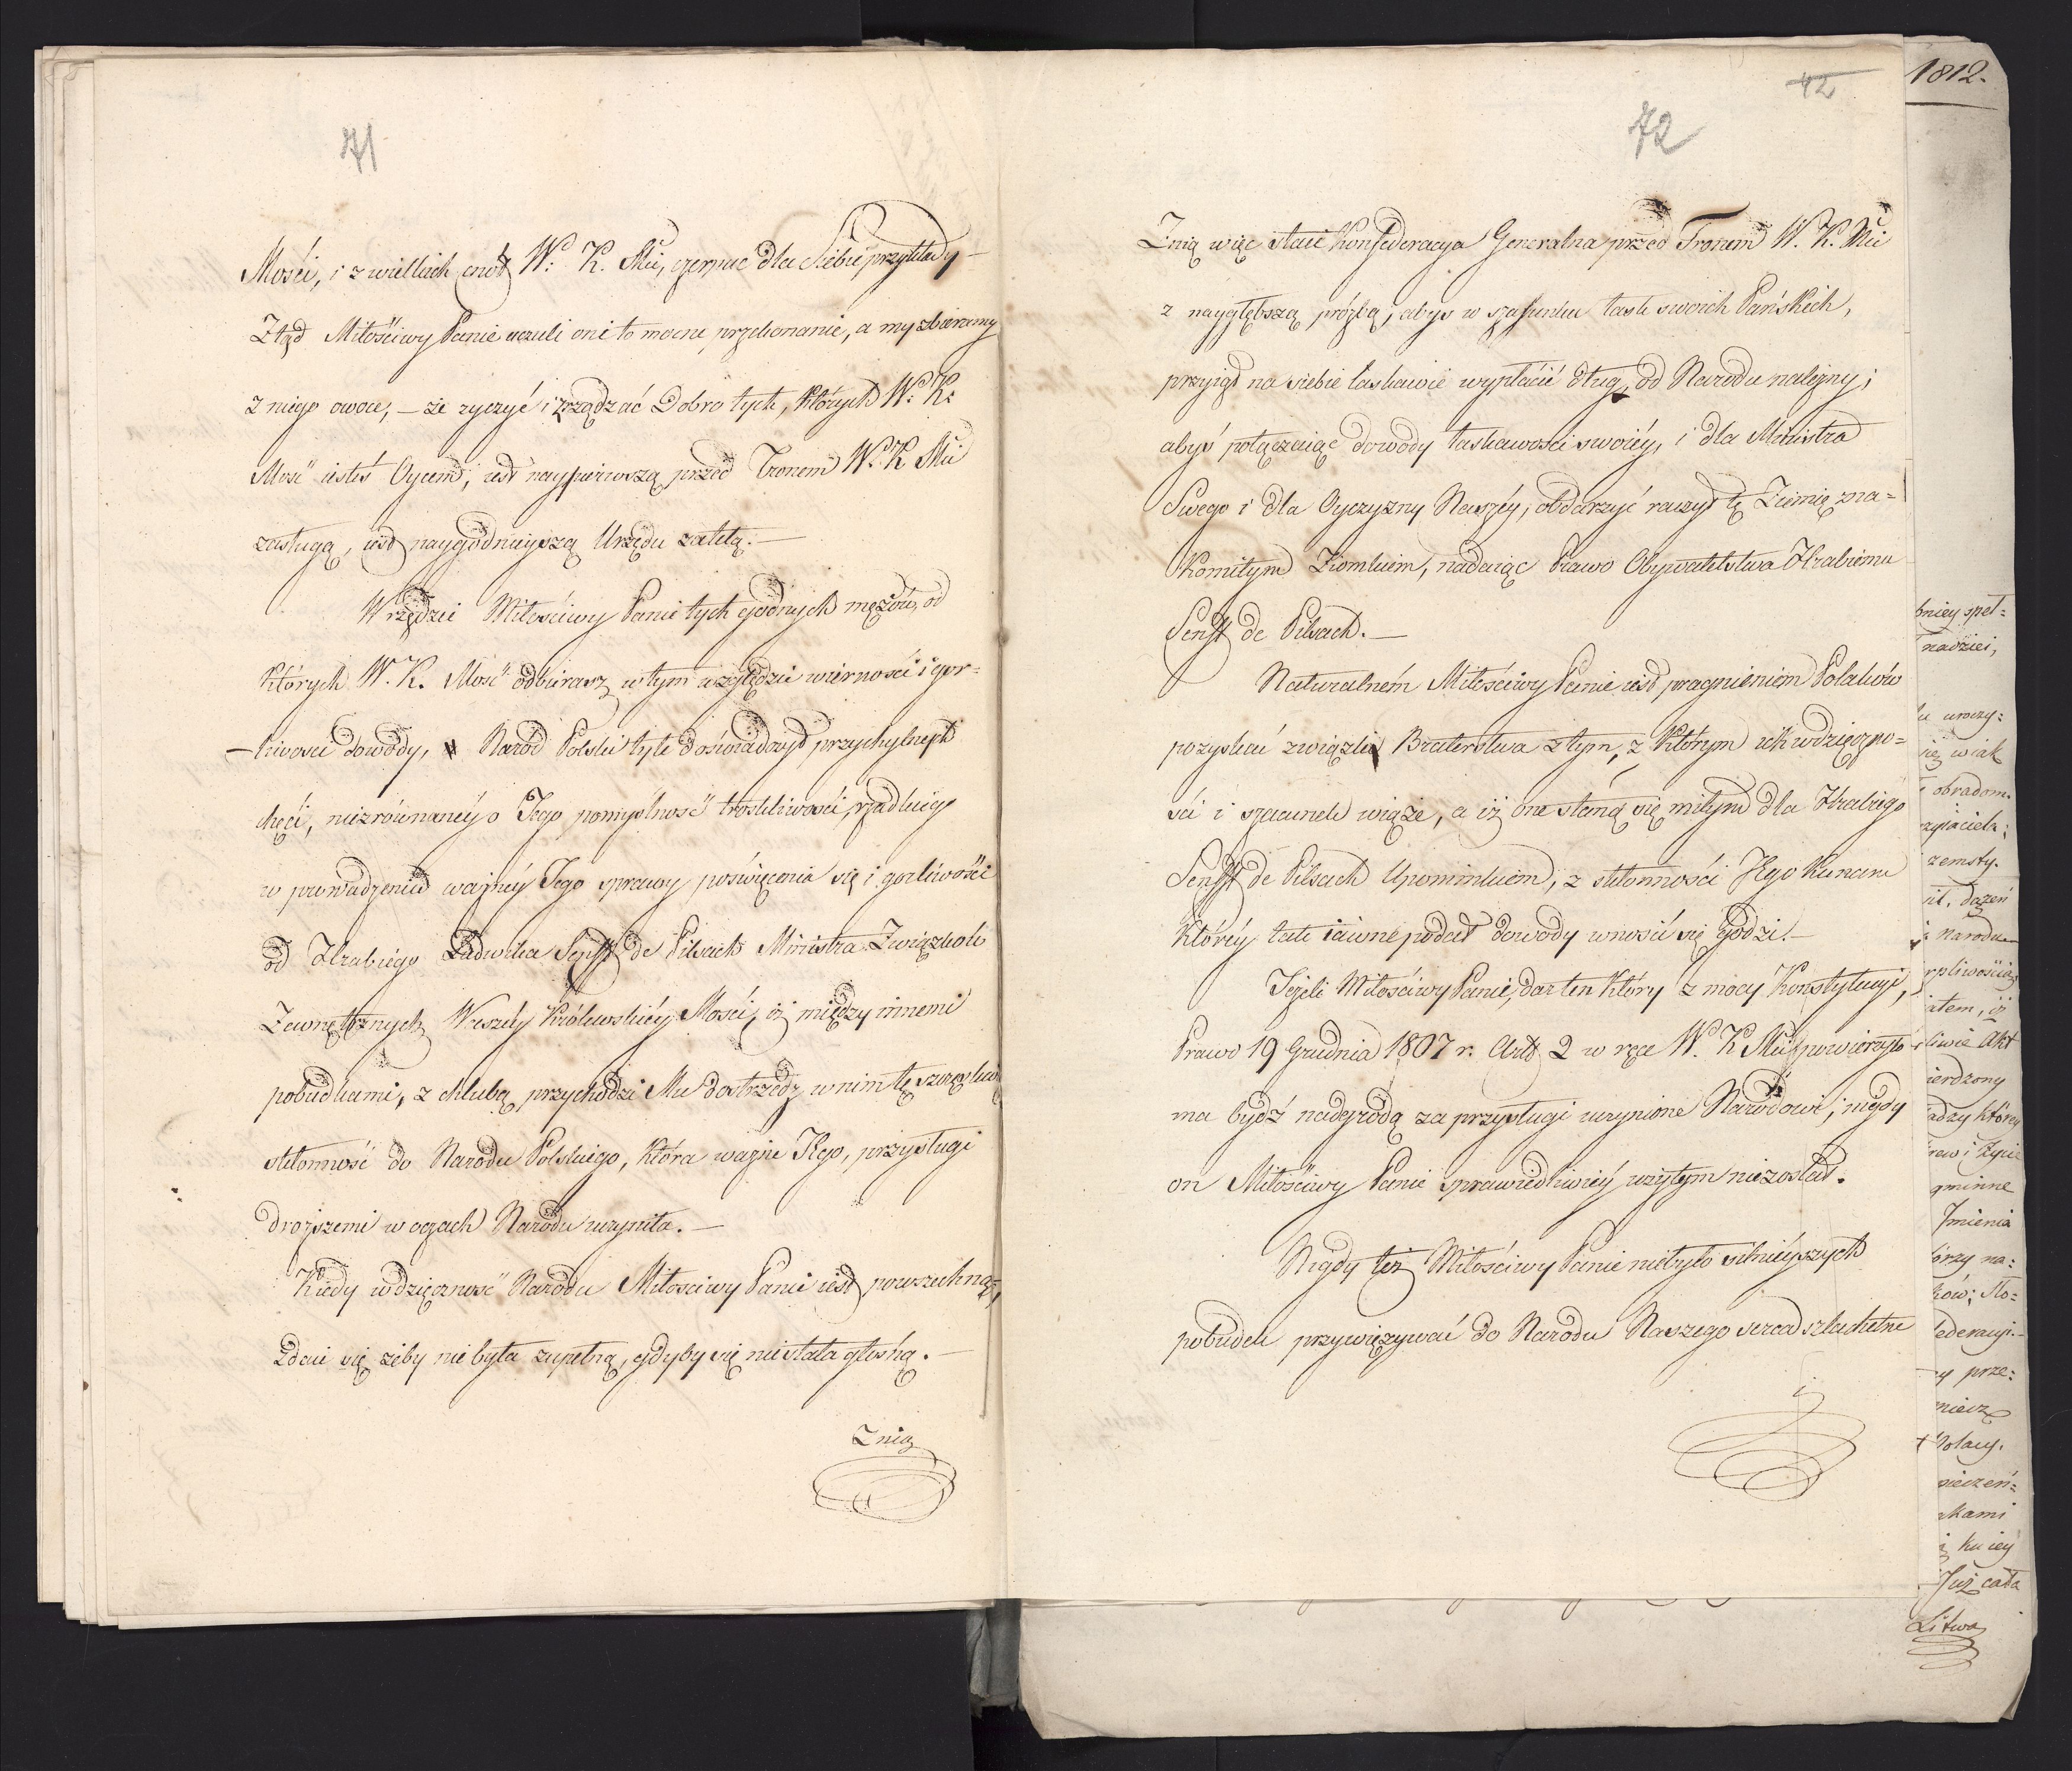 71
Mości, i z wielkich cnót W: K. Mci, czerpać dla Siebie przykłady –
Ztąd Miłościwy Panie uczuli oni to mocne przekonanie, a my zbieramy
z niego owoce, – że życzyć i zrządzać Dobro tych, których W: K:
Mość iesteś Oycem, iest naypierwszą przed Tronem W. K Mci
zasługą, iest naygodnieyszą Urzędu zaletą. –
W rzędzie Miłościwy Panie tych godnych mężów, od
których W. K. Mość odbierasz w tym względzie wierności i gor-
-liwości dowody, Naród Polski tyle doświadczył przychylnych
chęci, niezrównanéy o Jego pomyślność troskliwości, rzadkiego
w prowadzeniu ważnéy Jego sprawy poświęcenia się i gorliwości
od Hrabiego Ludwika Senfft de Pilsach Ministra Związków
Zewnętrznych Waszéy Królewskiéy Mości, iż między innemi
pobudkami, z chlubą przychodzi Mu dostrzedz w nim tę szczególną
skłonność do Narodu Polskiego, która ważne Jego, przysługi
droższemi w oczach Narodu uczyniła. –
Kiedy wdzięczność Narodu Miłościwy Panie iest powszechną,
zdaie się żeby nie była zupełną, gdyby się nie stała głośną. –
Z nią
42
72
Z nią więc staie Konfederacya Generalna przed Tronem W. K. Mci
z naygłębszą prózbą, abyś w szafunku łask swoich Pańskich,
przyiął na siebie łaskawie wypłacić dług, od Narodu należny;
abyś połączaiąc dowody łaskawości swoiéy, i dla Ministra
Swego i dla Oyczyzny Naszéy, obdarzyć raczył tę Ziemię zna=
komitym Ziomkiem, nadaiąc Prawo Obywatelstwa Hrabiemu
Senfft de Pilsach. –
Naturalném Miłościwy Panie iest pragnieniem Polaków
pozyskać związki Braterstwa z tym, z którym ich wdzięczno=
ści i szacunek wiąże, a iż one staną się miłym dla Hrabiego
Senfft de Pilsach Upominkiem, z skłonności Jego ku nam
któréy tak iawne podał dowody wnosić się godzi. –
Jeżeli Miłościwy Panie, dar ten który z mocy Konstytucyi,
Prawo 19 Grudnia 1807 r. Art 2 w ręce W. K Mci powierzyło
ma bydź nadgrodą za przysługi uczynione Narodowi; nigdy
on Miłościwy Panie sprawiedliwiéy użytym nie został.
Nigdy też Miłościwy Panie nie było silnieyszych
pobudek przywiązywać do Narodu Naszego serca szlachetne
1812.
bniey speł=
nadziei,
uroczy=
się wiak
obradom.
zyiaciela;
zemsty.
dążeń
Narodu
rpliwością
atem, iż
liwie Akt
ierdzony
adzy którey
rew i życie
gminne
Jmienia
órzy na:
ków; Sto=
federacyi. –
y prze:
niecz
Polacy.
pieczeń=
kami
ku iey
Już cała
Litwa